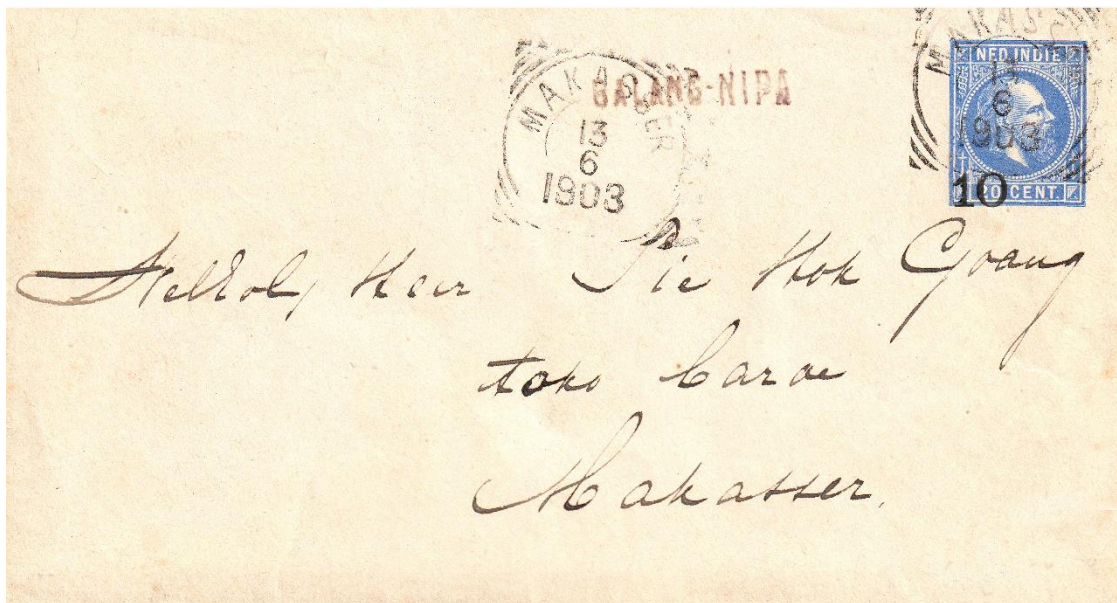 MAKASSER
13
6
1903
BALANG-NIPA
MAKASS
13
6
1903
NED. INDIE
10
20 CENT.
Heer Tie Hok
toko Baroe
Makasser.